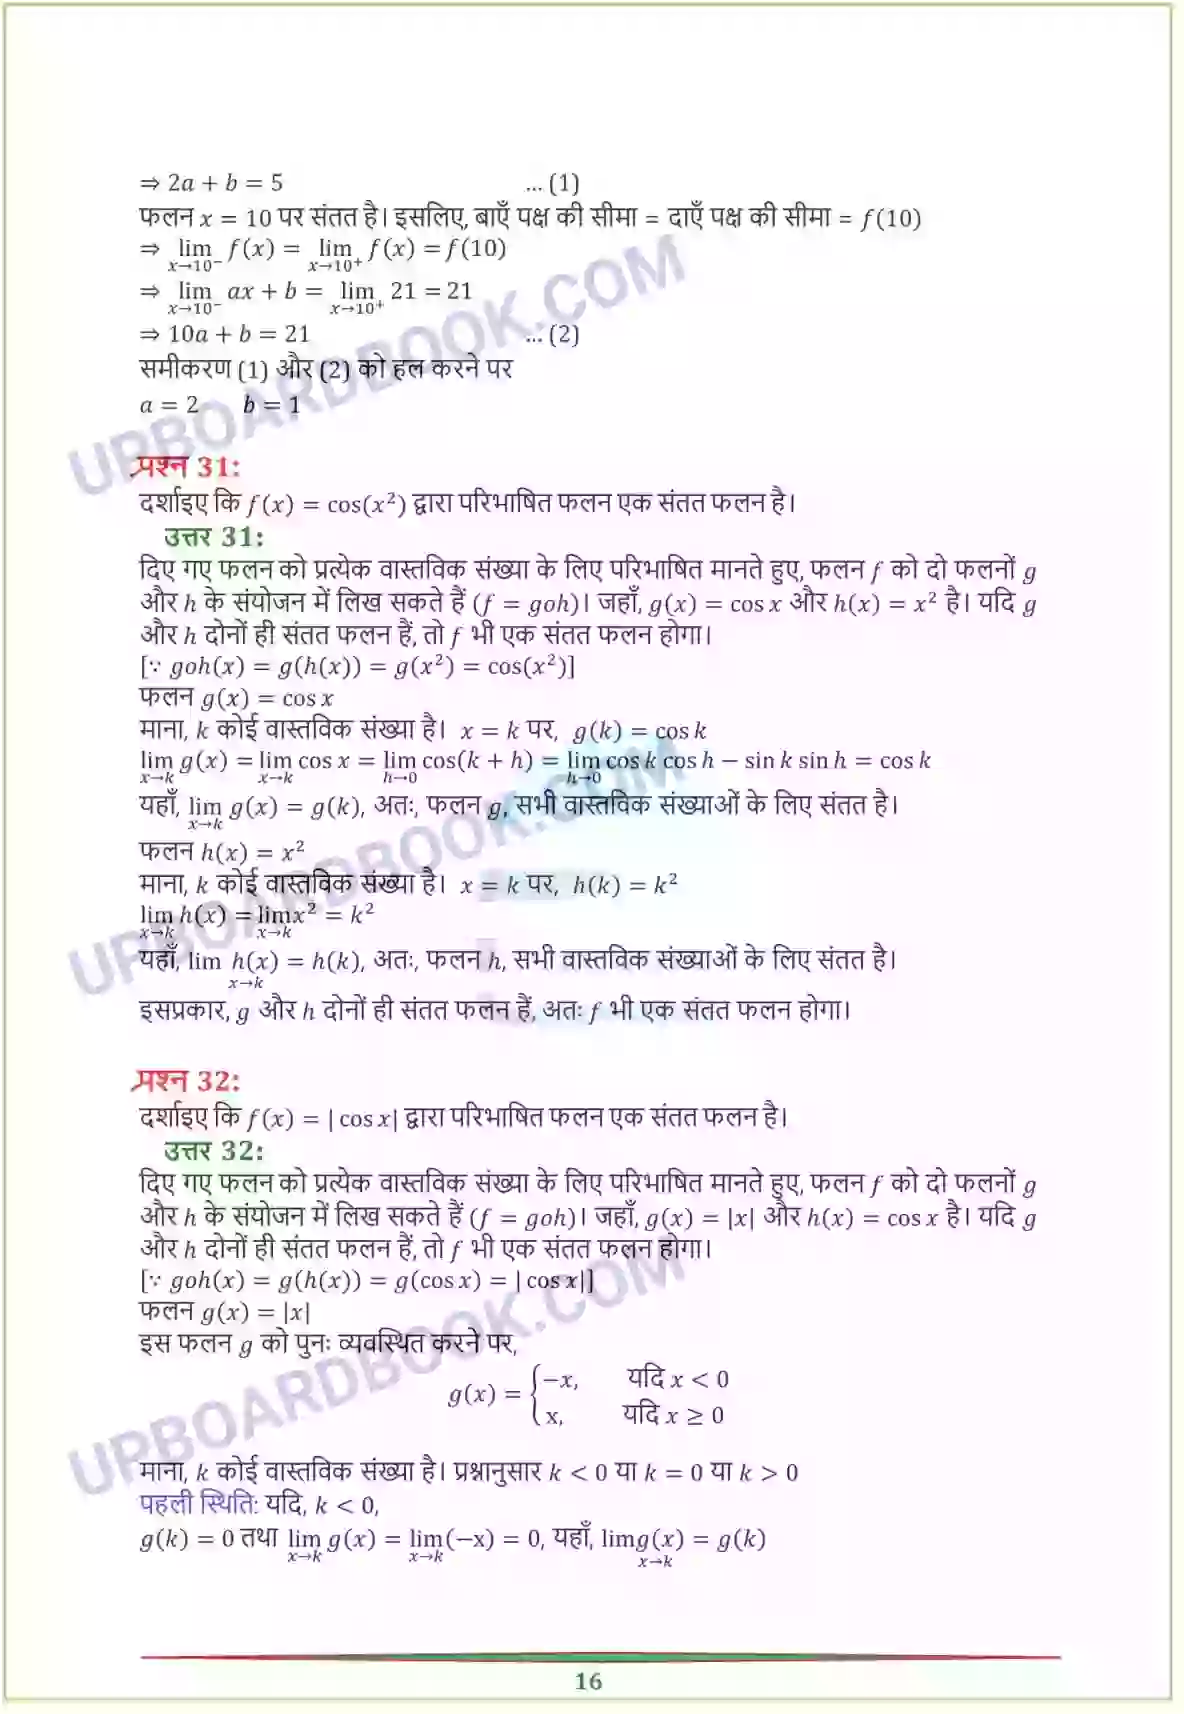 ⇒ 2a + b = 5 ... (1)
फलन x = 10 पर संतत है। इसलिए, बाएँ पक्ष की सीमा = दाएँ पक्ष की सीमा = f(10)
⇒ lim x→10⁻ f(x) = lim x→10⁺ f(x) = f(10)
⇒ lim x→10⁻ ax + b = lim x→10⁺ 21 = 21
⇒ 10a + b = 21 ... (2)
समीकरण (1) और (2) को हल करने पर
a = 2 b = 1
प्रश्न 31:
दर्शाइए कि f(x) = cos(x²) द्वारा परिभाषित फलन एक संतत फलन है।
उत्तर 31:
दिए गए फलन को प्रत्येक वास्तविक संख्या के लिए परिभाषित मानते हुए, फलन f को दो फलनों g
और h के संयोजन में लिख सकते हैं (f = goh)। जहाँ, g(x) = cos x और h(x) = x² है। यदि g
और h दोनों ही संतत फलन हैं, तो f भी एक संतत फलन होगा।
[∵ goh(x) = g(h(x)) = g(x²) = cos(x²)]
फलन g(x) = cos x
माना, k कोई वास्तविक संख्या है। x = k पर, g(k) = cos k
lim x→k g(x) = lim x→k cos x = lim h→0 cos(k + h) = lim h→0 cos k cos h − sin k sin h = cos k
यहाँ, lim x→k g(x) = g(k), अतः, फलन g, सभी वास्तविक संख्याओं के लिए संतत है।
फलन h(x) = x²
माना, k कोई वास्तविक संख्या है। x = k पर, h(k) = k²
lim x→k h(x) = lim x→k x² = k²
यहाँ, lim x→k h(x) = h(k), अतः, फलन h, सभी वास्तविक संख्याओं के लिए संतत है।
इसप्रकार, g और h दोनों ही संतत फलन हैं, अतः f भी एक संतत फलन होगा।
प्रश्न 32:
दर्शाइए कि f(x) = | cos x| द्वारा परिभाषित फलन एक संतत फलन है।
उत्तर 32:
दिए गए फलन को प्रत्येक वास्तविक संख्या के लिए परिभाषित मानते हुए, फलन f को दो फलनों g
और h के संयोजन में लिख सकते हैं (f = goh)। जहाँ, g(x) = |x| और h(x) = cos x है। यदि g
और h दोनों ही संतत फलन हैं, तो f भी एक संतत फलन होगा।
[∵ goh(x) = g(h(x)) = g(cos x) = | cos x|]
फलन g(x) = |x|
इस फलन g को पुनः व्यवस्थित करने पर,
g(x) = { −x, यदि x < 0
x, यदि x ≥ 0
माना, k कोई वास्तविक संख्या है। प्रश्नानुसार k < 0 या k = 0 या k > 0
पहली स्थिति: यदि, k < 0,
g(k) = 0 तथा lim x→k g(x) = lim x→k (−x) = 0, यहाँ, lim x→k g(x) = g(k)
16
UPBOARDBOOK.COM
UPBOARDBOOK.COM
UPBOARDBOOK.COM